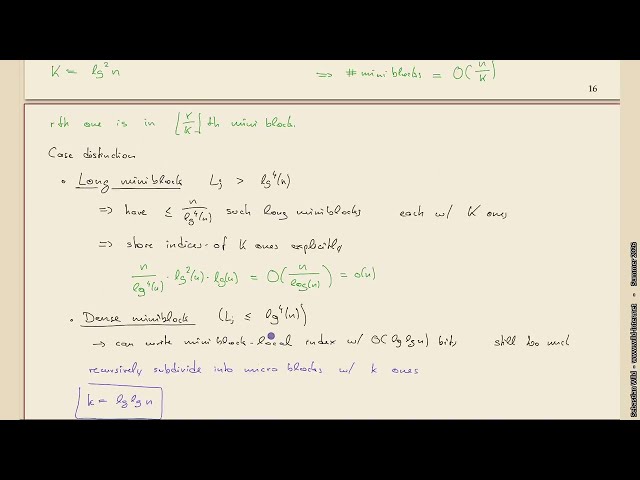 K = lg² n ⟹ # miniblocks = O(n/K)
16
rth one is in ⌊r/K⌋ th miniblock.
Case distinction
• Long miniblock Lⱼ > lg⁴(n)
⟹ have ≤ n/lg⁴(n) such long miniblocks each w/ K ones
⟹ store indices of K ones explicitly
n/lg⁴(n) · lg²(n) · lg(n) = O(n/log(n)) = o(n)
• Dense miniblock (Lⱼ ≤ lg⁴(n))
→ can write miniblock-local index w/ O(lg lg n) bits still too much
recursively subdivide into micro blocks w/ k ones
k = lg lg n
Sebastian Wild - www.wild-inter.net - Summer 2025